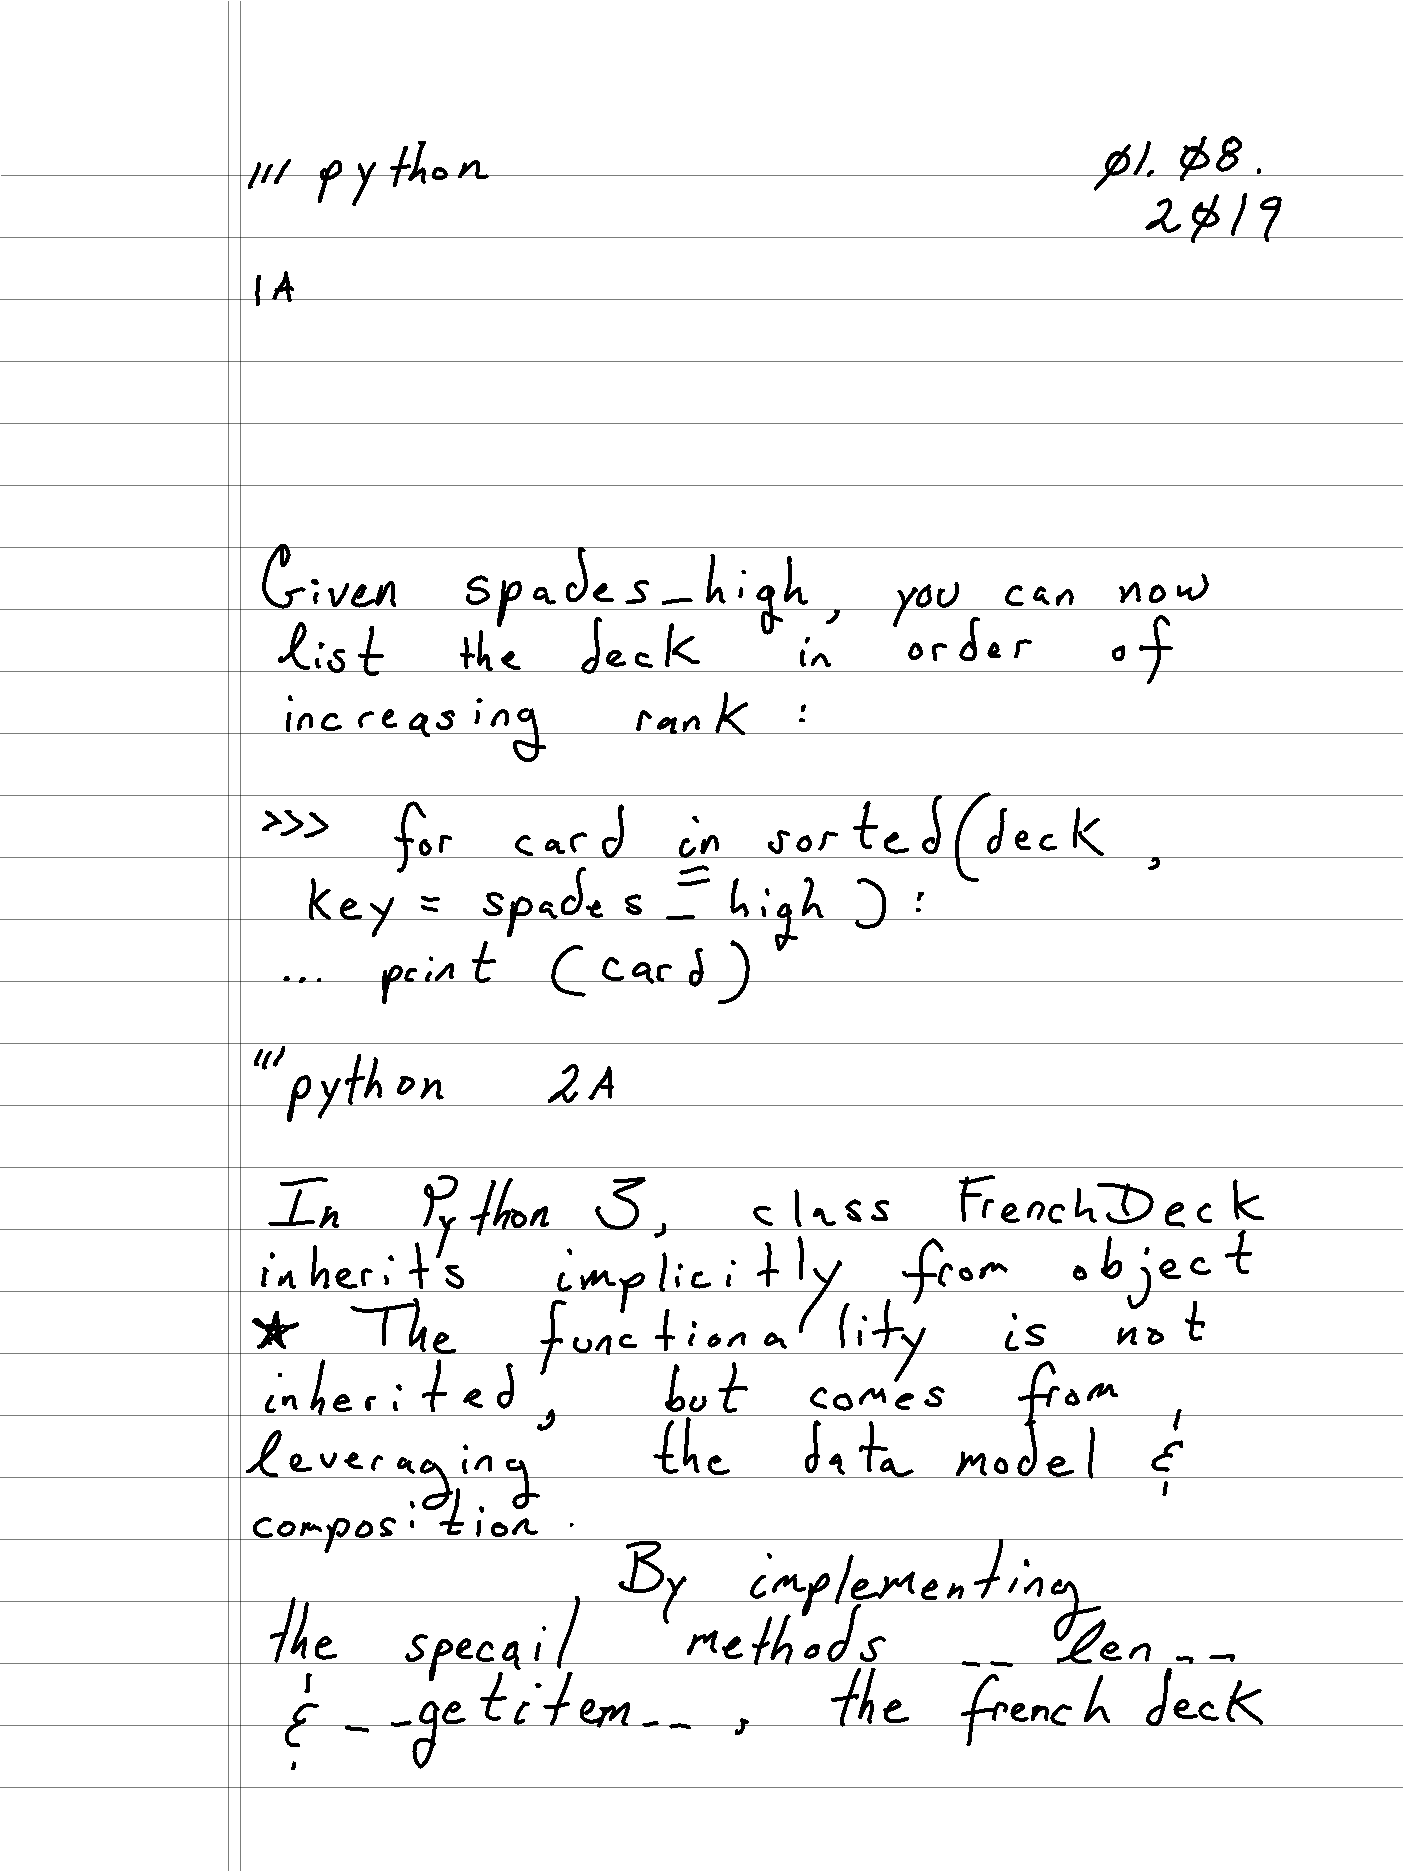 ''' python
Ø1. Ø8.
2Ø19
1A
Given spades_high, you can now
list the deck in order of
increasing rank :
>>> for card in sorted(deck ,
key = spades _ high ) :
... print (card)
'''python 2A
In Python 3, class FrenchDeck
inherits implicitly from object
★ The functionality is not
inherited, but comes from
leveraging the data model &
composition.
By implementing
the specail methods __ len __
& __getitem__ , the french deck